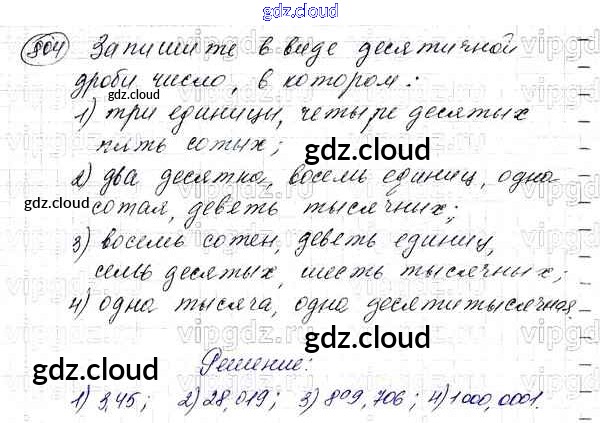 gdz.cloud
804 Запишите в виде десятичной
дроби число, в котором:
1) три единицы, четыре десятых
пять сотых;
2) два десятка, восемь единиц, одна
сотая, девять тысячных;
3) восемь сотен, девять единиц,
семь десятых, шесть тысячных;
4) одна тысяча, одна десятитысячная
Решение:
1) 3,45; 2) 28,019; 3) 809,706; 4) 1000,0001.
gdz.cloud
gdz.cloud
gdz.cloud
gdz.cloud
gdz.cloud
gdz.cloud